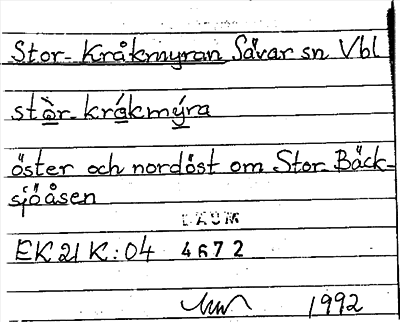 Stor-Kråkmyran Sävar sn Vbl
stòr-krákmýra
öster och nordöst om Stor-Bäck-
sjöåsen
DAUM
EK 21 K:04 4672
1992